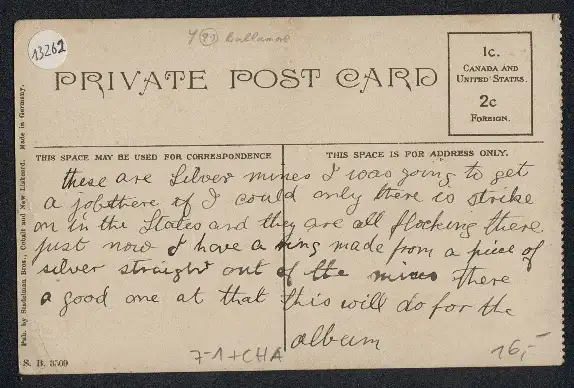 13262
PRIVATE POST CARD
1c.
CANADA AND
UNITED STATES.
2c
FOREIGN.
THIS SPACE MAY BE USED FOR CORRESPONDENCE
THIS SPACE IS FOR ADDRESS ONLY.
these are silver mines I was going to get
a job there if I could only there is strike
on in the States and they are all flocking there
just now I have a ring made from a piece of
silver straight out of the mines there
a good one at that this will do for the
album
7-1+CHA
16,-
Pub. by Steidelman Bros., Cobalt and New Liskeard. Made in Germany.
S. B. 3509